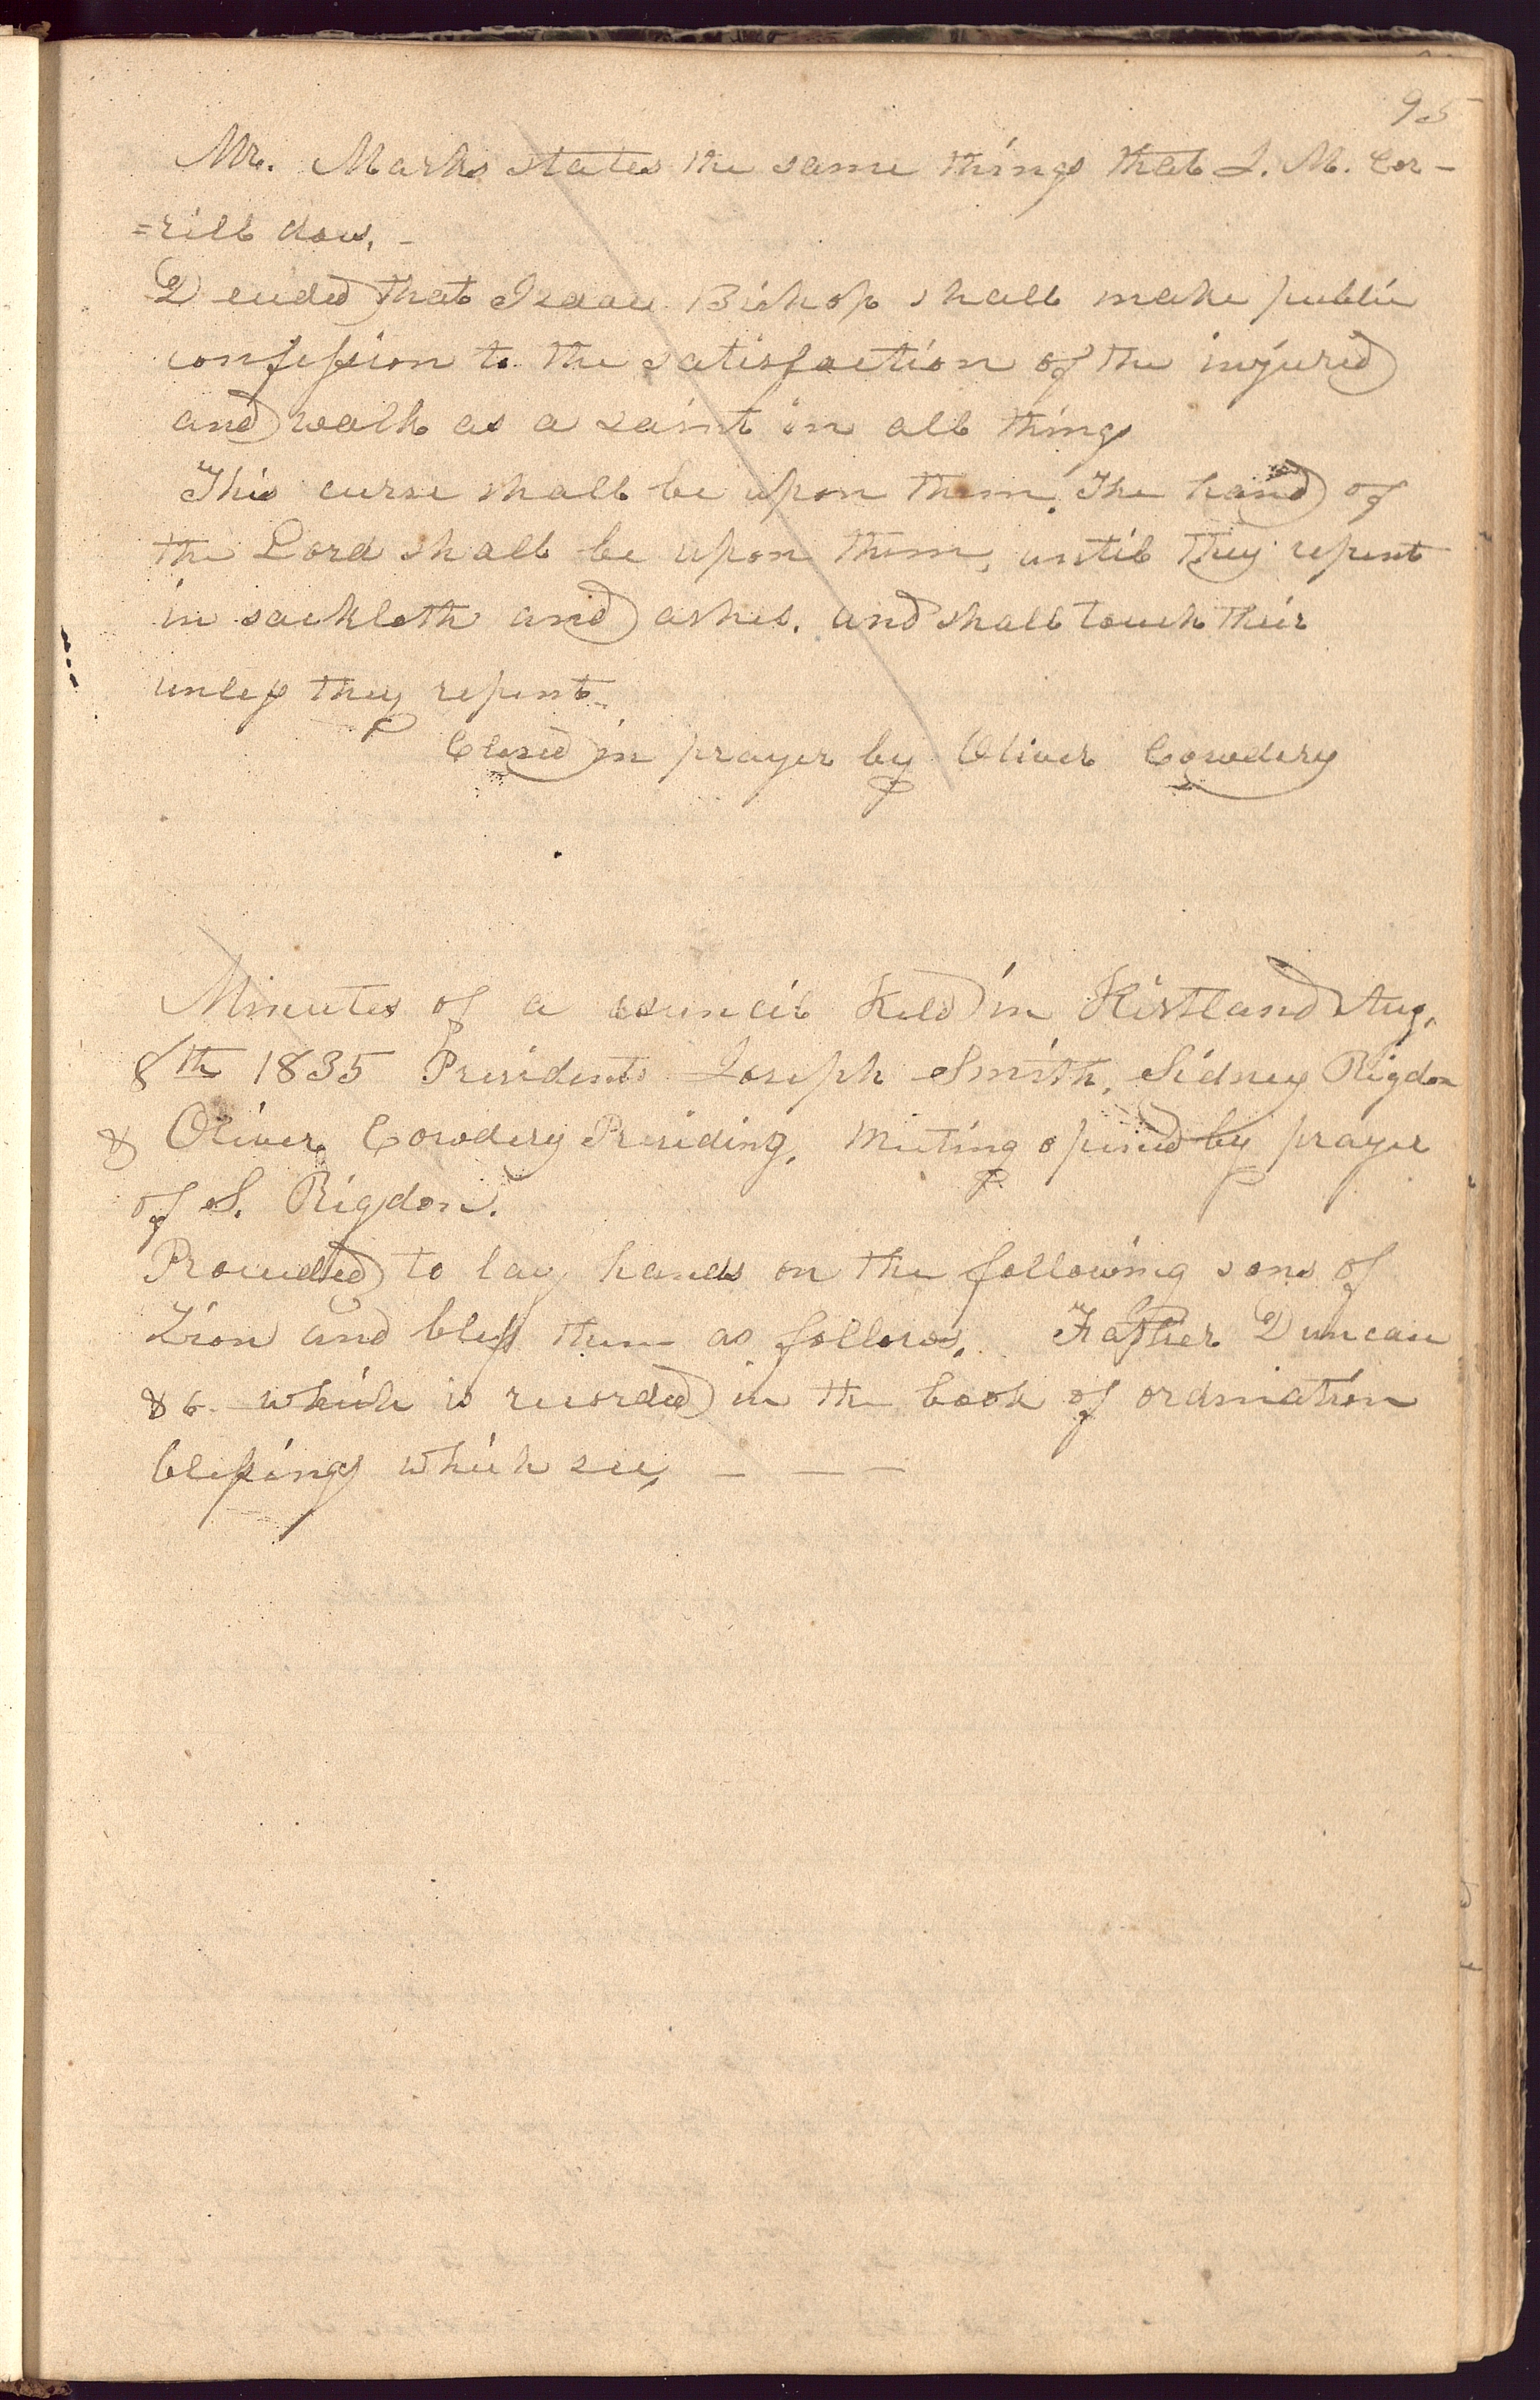 95
Mr. Marks states the same things that J. M. Cor-
=rill does. -
Decided that Isaac Bishop shall make public
confession to the satisfaction of the injured
and walk as a saint in all things
This curse shall be upon them. The hand of
the Lord shall be upon them, until they repent
in sackloth and ashes. and shall touch their
unless they repent
Closed in prayer by Oliver Cowdery
Minutes of a council held in Kirtland Aug.
8th 1835 Presidents Joseph Smith, Sidney Rigdon
& Oliver Cowdery Presiding. Meeting opened by prayer
of S. Rigdon.
Proceeded to lay hands on the following sons of
Zion and bless them as follows. Father Duncan
&c. which is recorded in the book of ordination
blessings which see, — — —